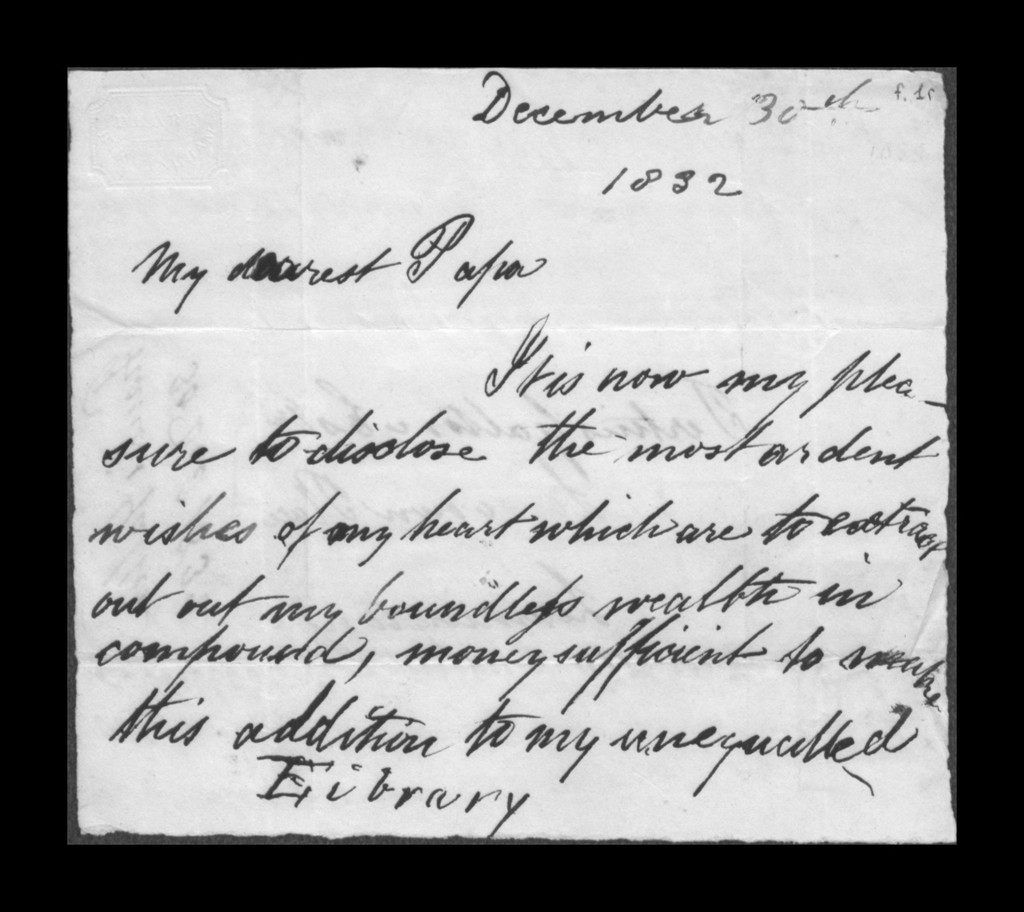 December 30th
f.1r
1832
My dearest Papa
It is now my plea-
sure to disclose the most ardent
wishes of my heart which are to extract
out out my boundless wealth in
compound, money sufficient to make
this addition to my unequalled
Library